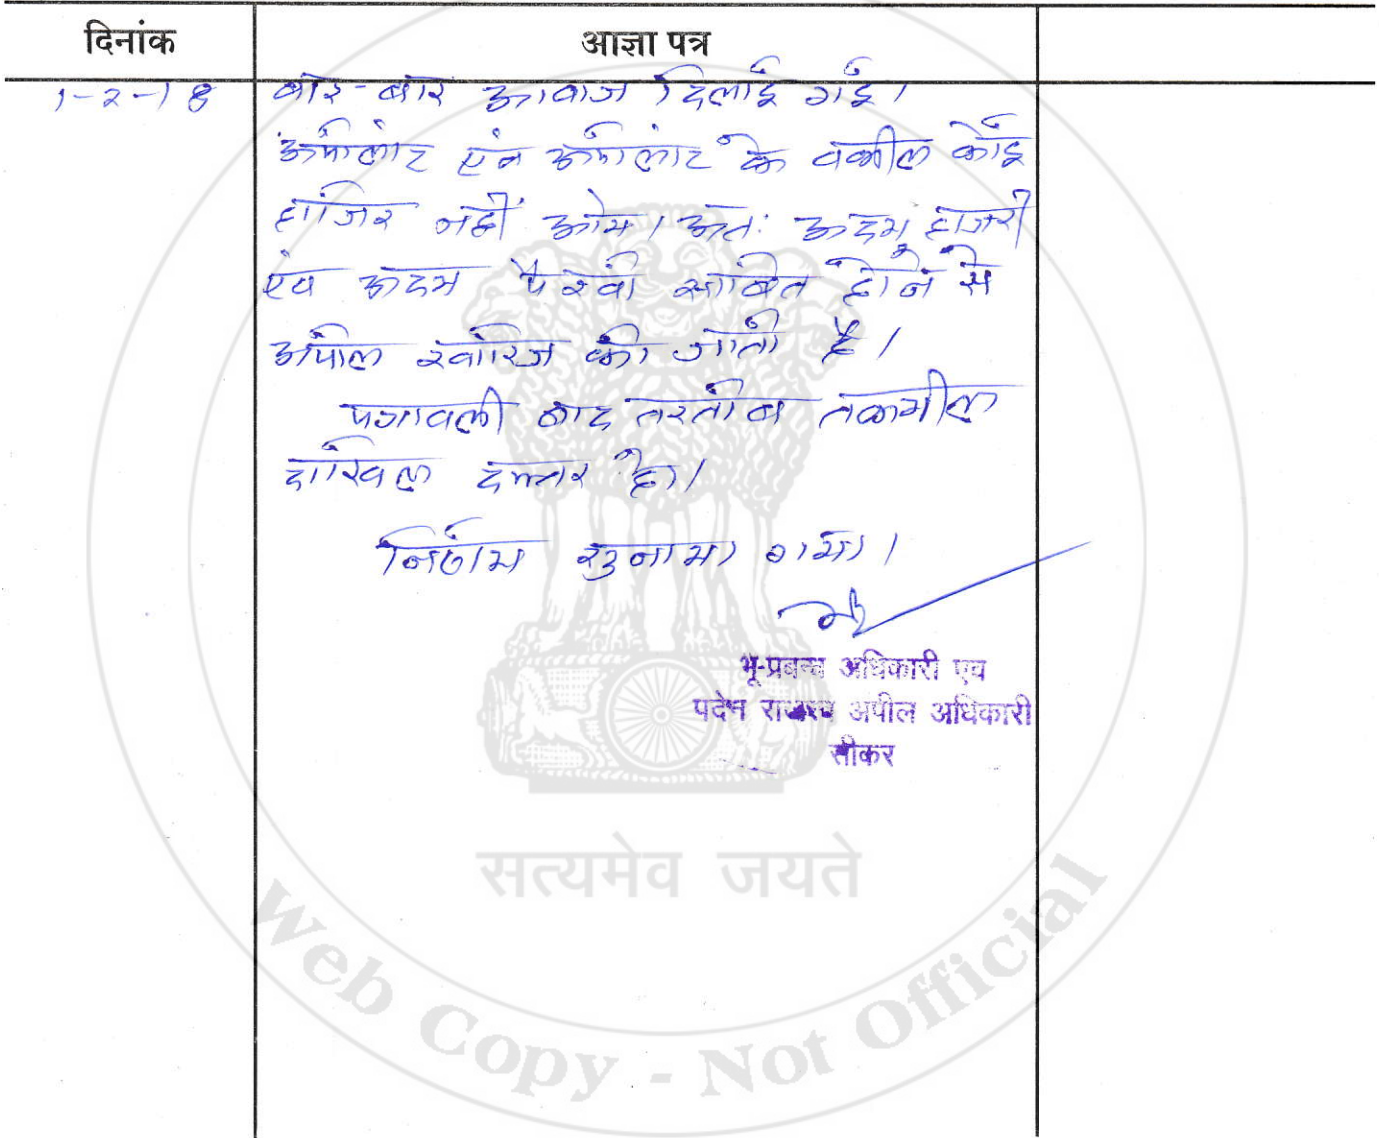 दिनांक आज्ञा पत्र
1-2-18 बार-बार आवाज दिलाई गई।
अपीलांट एंव अपीलांट के वकील कोई
हाजिर नहीं आये। अतः अदम हाजरी
एंव अदम पैरवी साबित होने से
अपील खारिज की जाती है।
पत्रावली बाद तरतीब तकमील
दाखिल दफ्तर हो।
निर्णय सुनाया गया।
भू-प्रबन्ध अधिकारी एव
पदेन राजस्व अपील अधिकारी
सीकर
सत्यमेव जयते
Web Copy - Not Official